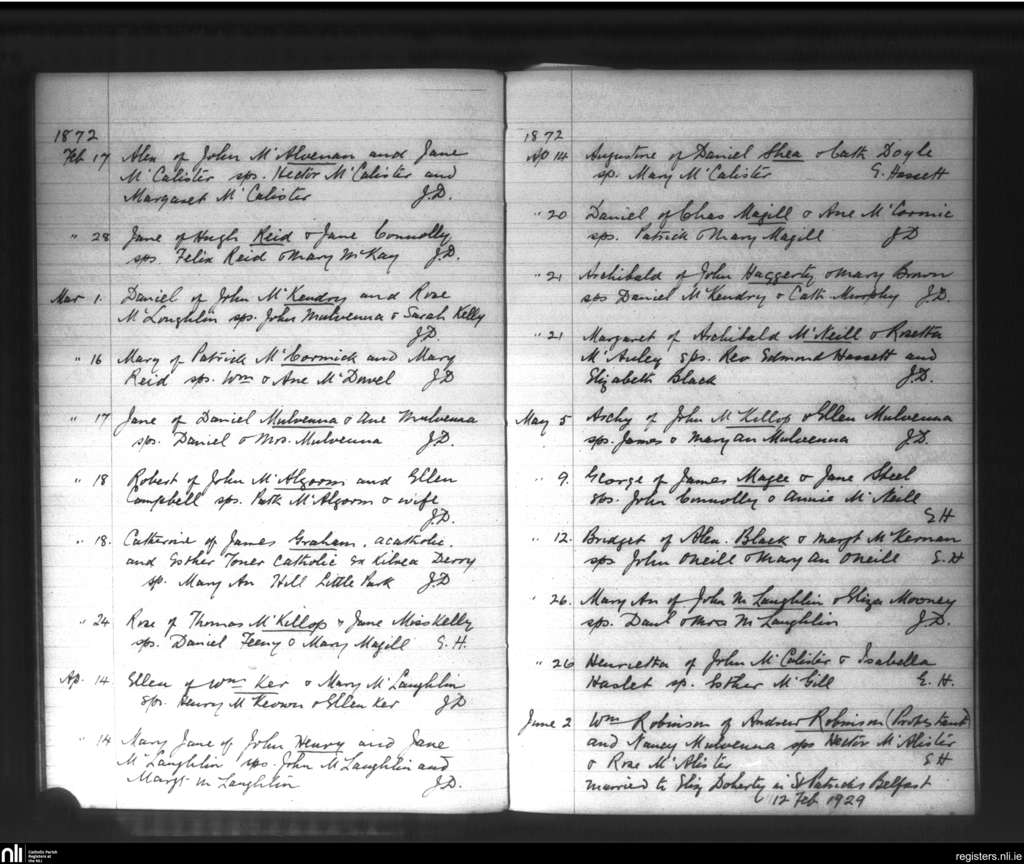 1872
Feb 17 Alex of John McAlvenan and Jane
McCalister sps. Hector McCalister and
Margaret McCalister J.D.
" 28 Jane of Hugh Reid & Jane Connolly
sps. Felix Reid & Mary McKay J.D.
Mar 1. Daniel of John McKendry and Rose
McLoughlin sps. John Mulvenna & Sarah Kelly
J.D.
" 16 Mary of Patrick McCormick and Mary
Reid sps. Wm & Ane McDowel J.D
" 17 Jane of Daniel Mulvenna & Ane Mulvenna
sps. Daniel & Mrs. Mulvenna J.D.
" 18 Robert of John McAlgorm and Ellen
Campbell sps. Patk McAlgorm & wife
J.D.
" 18. Catherine of James Graham, acatholic.
and Esther Toner Catholic Ex Kilrea Derry
sp. Mary An Hill Little Park J.D
" 24 Rose of Thomas McKillop & Jane MissKelly
sps. Daniel Feeny & Mary Magill E.H.
Ap. 14 Ellen of Wm Ker & Mary McLaughlin
sps. Henry McKeown & Ellen Ker J.D
" 14 Mary Jane of John Henry and Jane
McLaughlin sps. John McLaughlin and
Margt McLaughlin J.D.
1872
Ap 14 Augustine of Daniel Shea & Cath Doyle
sp. Mary McCalister E. Hassett
" 20 Daniel of Chas Magill & Ane McCormic
sps. Patrick & Mary Magill J.D
" 21 Archibald of John Haggerty & Mary Brown
sps Daniel McKendry & Cath Murphy J.D.
" 21 Margaret of Archibald McNeill & Rosetta
McAuley sps. Rev Edmond Hassett and
Elizabeth Black J.D.
May 5 Archy of John McKillop & Ellen Mulvenna
sps. James & Mary an Mulvenna J.D.
" 9. George of James Magee & Jane Steel
sps. John Connolly & Annie McNeill
EH
" 12. Bridget of Alex. Black & Margt McKernan
sps John Oneill & Mary an Oneill E.H
" 26. Mary An of John McLaughlin & Eliza Mooney
sps. Danl & Mrs McLaughlin J.D.
" 26 Henrietta of John McCalister & Isabella
Haslet sp. Esther McGill E.H.
June 2 Wm Robinson of Andrew Robinson (Protestant)
and Nancy Mulvenna sps Hector McAlister
& Rose McAlister EH
married to Eliz Doherty in St Patricks Belfast
12 Feb 1929
nli
Catholic Parish
Registers at
the NLI
registers.nli.ie